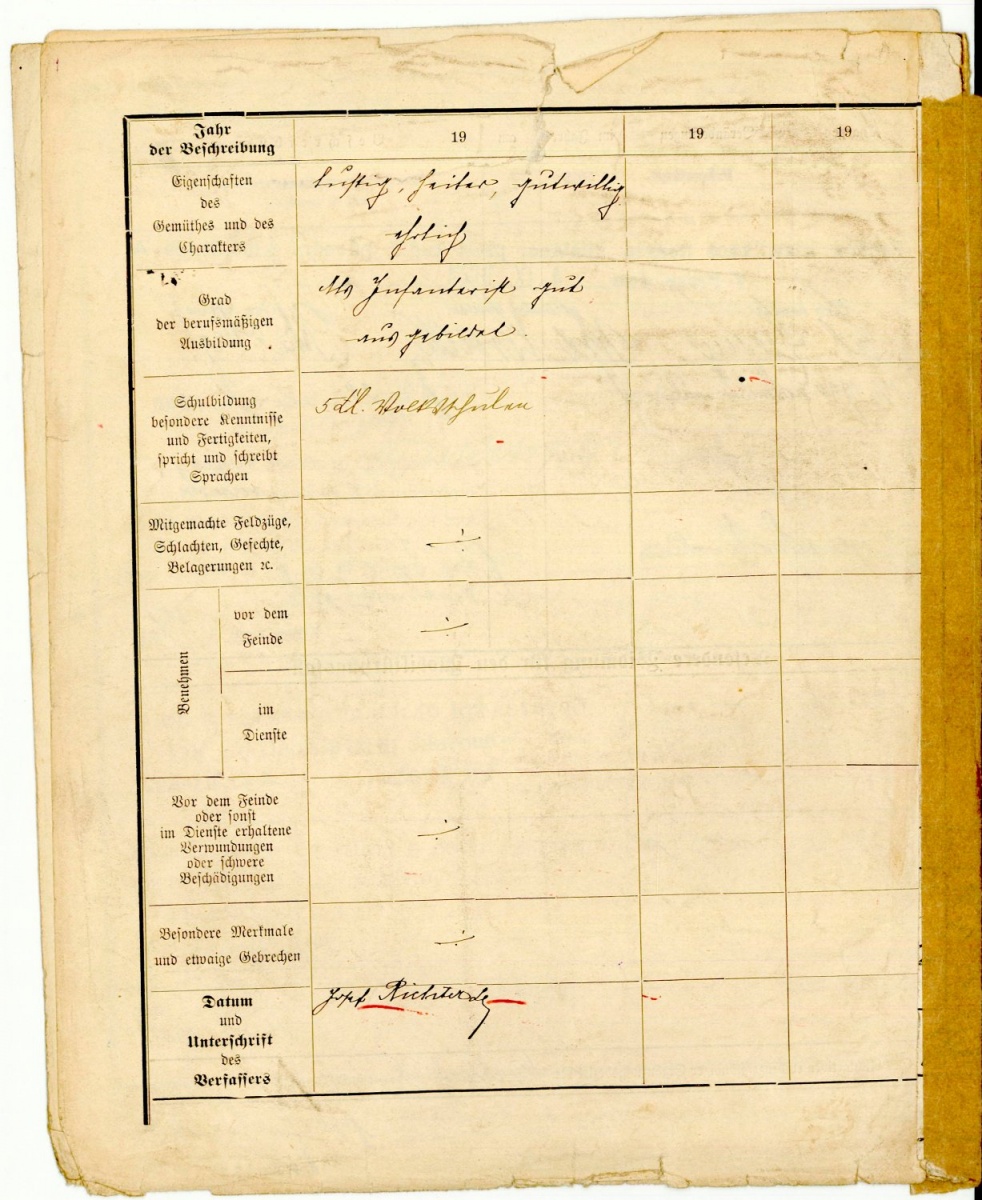 Jahr
der Beschreibung
19
19
19
Eigenschaften
des
Gemüthes und des
Charakters
lustig, heiter, gutwillig
ehrlich
Grad
der berufsmäßigen
Ausbildung
Als Infanterist gut
ausgebildet.
Schulbildung
besondere Kenntnisse
und Fertigkeiten,
spricht und schreibt
Sprachen
5 Kl. Volksschulen
Mitgemachte Feldzüge,
Schlachten, Gefechte,
Belagerungen ꝛc.
÷
Benehmen
vor dem
Feinde
÷
im
Dienste
Vor dem Feinde
oder sonst
im Dienste erhaltene
Verwundungen
oder schwere
Beschädigungen
÷
Besondere Merkmale
und etwaige Gebrechen
÷
Datum
und
Unterschrift
des
Verfassers
Josef Richter